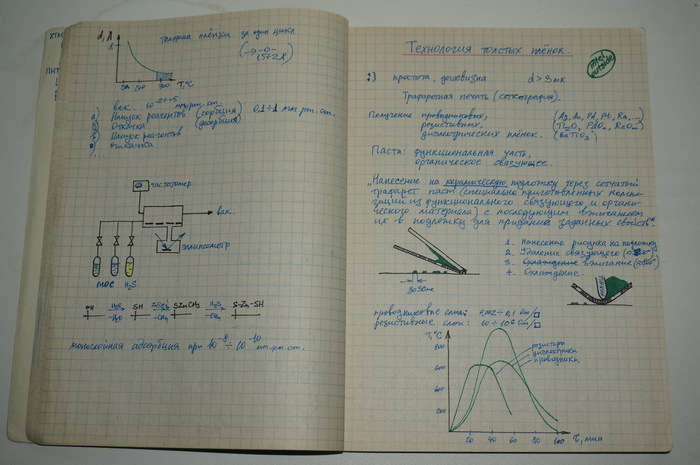 d, Å
толщина плёнки за один цикл
T, °C
вак. мм рт. ст.
Напуск реагентов (сорбция) 0,1÷1 мм рт. ст.
Откачка (десорбция)
Напуск реагентов
Откачка
...
частотомер
вак.
эллипсометр
МОС H₂S
OH H₂S SH SZnCH₃ H₂S S-Zn-SH
-H₂O -CH₄ -CH₄
монослойная адсорбция при 10⁻⁸ ÷ 10⁻¹⁰ мм. рт. ст.
Технология толстых плёнок.
intel outside
простота, дешевизна d > 3 мк
Трафаретная печать (сеткография).
Получение проводниковых, (Ag, Au, Pd, Pt, Rn, ...)
резистивных,
диэлектрических плёнок. (BaTiO₃)
Паста: функциональная часть,
органическое связующее.
„Нанесение на керамическую подложку через сетчатый
трафарет паст (специально приготовленных компо-
зиций из функционального связующего, и органи-
ческого материала) с последующим вжиганием
их в подложку для придания заданных свойств“
1. Нанесение рисунка на подложку
2. Удаление связующего
3. Охлаждение вжигание
4. Охлаждение.
проводниковые слои: 0,002 ÷ 0,1 Ом/□
резистивные слои: 10 ÷ 10⁶ Ом/□
T, °C
резисторы
диэлектрики
проводники
800
600
400
200
20 40 60 80 100 τ, мин